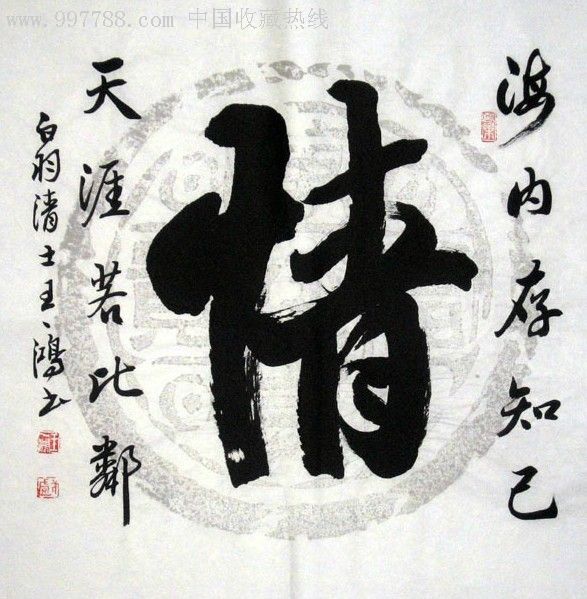 www.997788.com 中国收藏热线
海内存知己
情
天涯若比鄰
白羽清士王鴻书